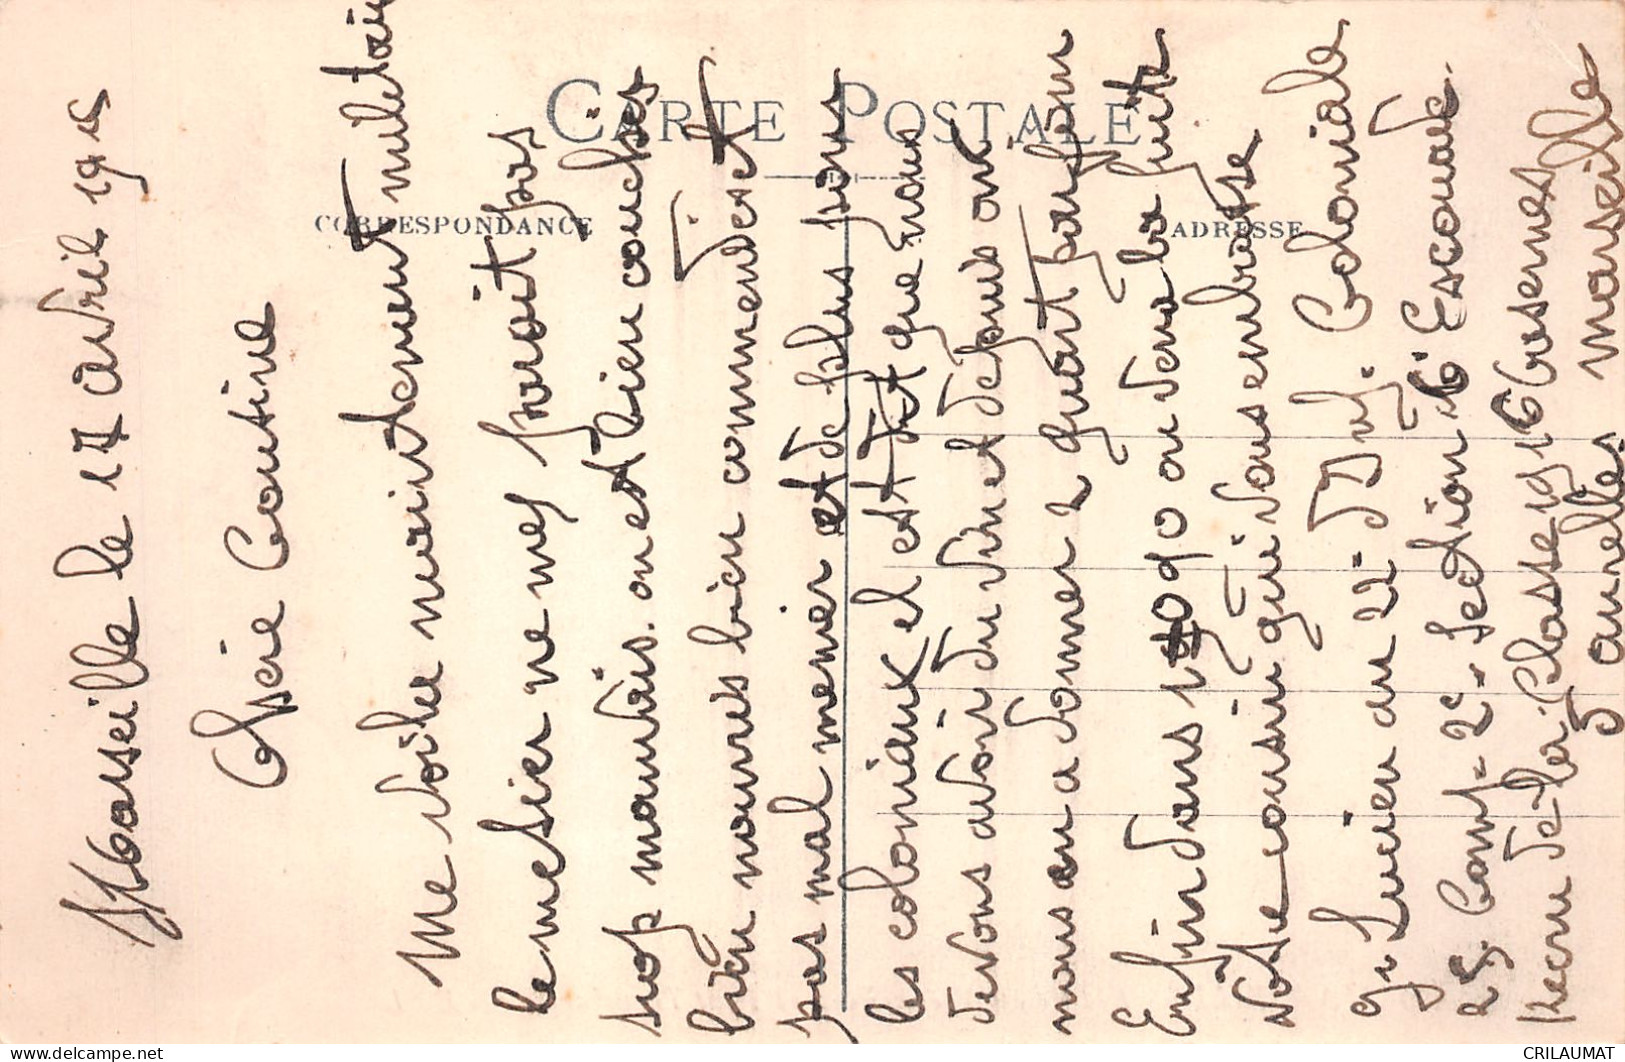 CARTE POSTALE
CORRESPONDANCE
ADRESSE
Marseille le 17 avril 191
Chère Coutine
Me voila maintenant militair
le metier ne mes parait pas
trop mauvais. on est bien couches
bien nourris bien commender et
pas mal mener et de plus pour
les coloniaux el est dit que nous
devons avoir du vin et depuis on
nous en a donner 2 quart par jour
Enfin dans 1090 on vera la suite
Votre cousin qui vous embrasse
Lucien au 22e Inf. Coloniale
25. Comp. 2e Section 16 Escouade
Recru de la Classe 1916 Casernes
d'aurelles Marseille
CRILAUMAT